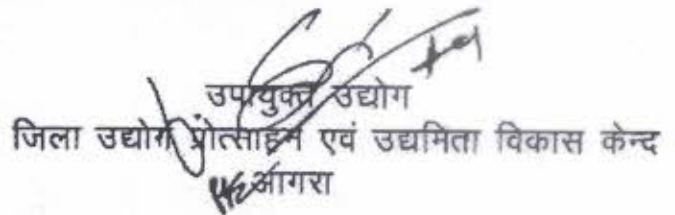 उपायुक्त उद्योग
जिला उद्योग प्रोत्साहन एवं उद्यमिता विकास केन्द
आगरा